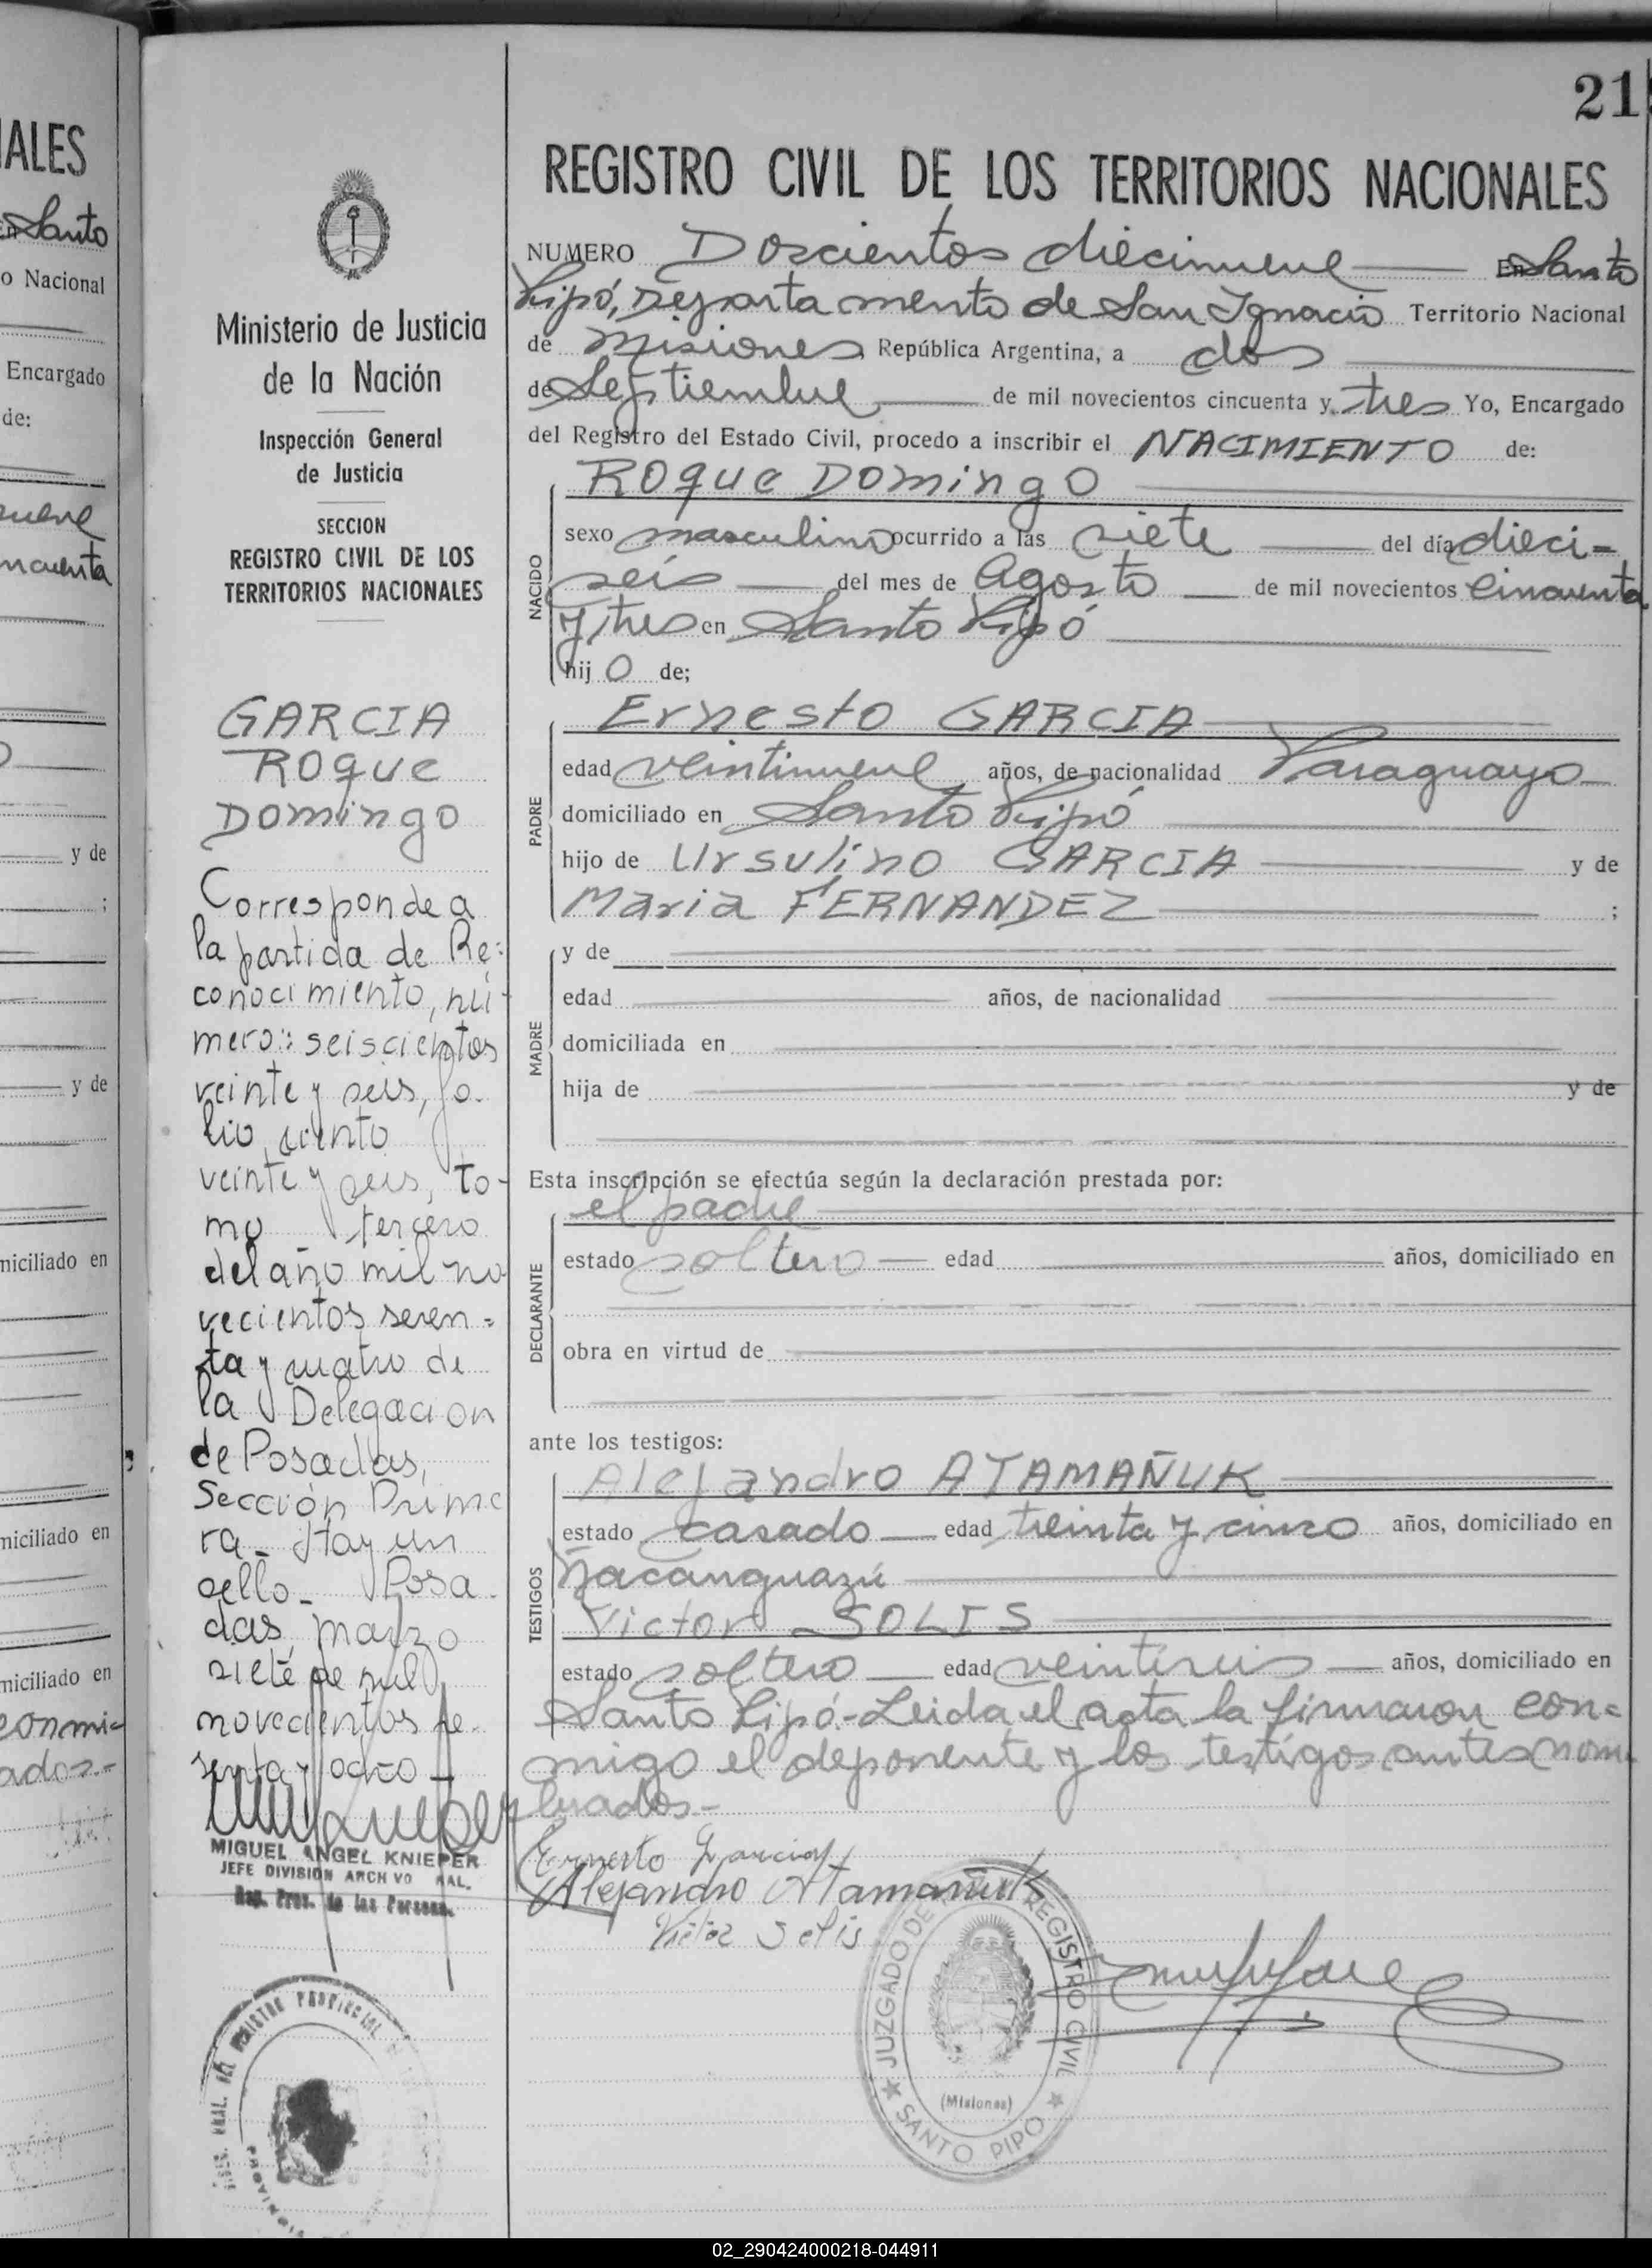 IALES
Santo
o Nacional
Encargado
de:
y de
;
y de
niciliado en
niciliado en
niciliado en
conmi-
ados.-
21
Ministerio de Justicia
de la Nación
Inspección General
de Justicia
SECCION
REGISTRO CIVIL DE LOS
TERRITORIOS NACIONALES
GARCIA
ROQUE
DOMINGO
Corresponde a
la partida de Re-
conocimiento, nú-
mero: seiscientos
veinte y seis, fo-
lio ciento
veinte y seis, to-
mo tercero
del año mil no
vecientos
y cuatro de
la Delegacion
de Posadas,
Sección Prime
ra_ Hay un
sello_ Posa-
das, marzo
siete de mil
novecientos se-
tenta y ocho_
MIGUEL ANGEL KNIEPER
JEFE DIVISION ARCH VO RAL.
Reg. Prov. de las Person.
REGISTRO CIVIL DE LOS TERRITORIOS NACIONALES
NUMERO Doscientos diecinueve En Santo
Pipó, Departamento de San Ignacio Territorio Nacional
de Misiones República Argentina, a dos
de Septiembre de mil novecientos cincuenta y tres Yo, Encargado
del Registro del Estado Civil, procedo a inscribir el NACIMIENTO de:
ROQUE DOMINGO
NACIDO
sexo masculino ocurrido a las siete del día dieci-
seis del mes de Agosto de mil novecientos cincuenta
y tres en Santo Pipó
hijo de;
PADRE
Ernesto GARCIA
edad veintinueve años, de nacionalidad Paraguayo
domiciliado en Santo Pipó
hijo de Ursulino GARCIA y de
Maria FERNANDEZ ;
MADRE
y de
edad años, de nacionalidad
domiciliada en
hija de y de
Esta inscripción se efectúa según la declaración prestada por:
DECLARANTE
el padre
estado soltero edad años, domiciliado en
obra en virtud de
ante los testigos:
TESTIGOS
Alejandro ATAMAÑUK
estado casado edad treinta y cinco años, domiciliado en
Ñacanguazú
Victor SOLIS
estado soltero edad veintiseis años, domiciliado en
Santo Pipó.-Leida el acta la firmaron con-
migo el deponente y los testigos antes nom
brados.-
Ernesto Garcia
Alejandro Atamañuk
Victor Solis
JUZGADO DE REGISTRO CIVIL
(Misiones)
SANTO PIPO
REGISTRO PROVINCIAL
02_290424000218-044911